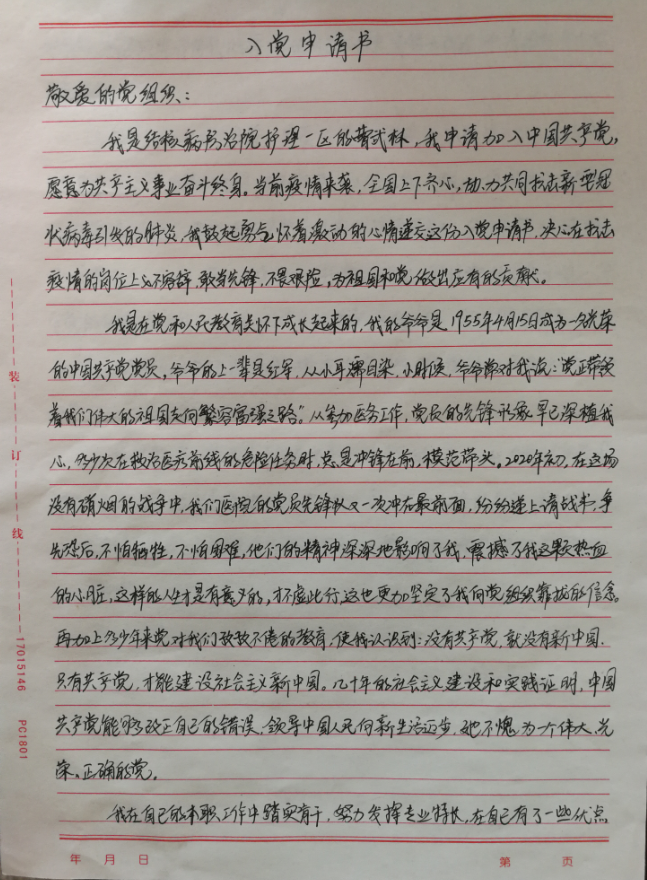 入党申请书
敬爱的党组织：
我是结核病防治院护理一区的黄式林，我申请加入中国共产党，
愿意为共产主义事业奋斗终身。当前疫情来袭，全国上下齐心，勠力共同抗击新型冠
状病毒引发的肺炎，我鼓起勇气，怀着激动的心情递交这份入党申请书，决心在抗击
疫情的岗位上义不容辞，敢当先锋，不畏艰险，为祖国和党做出应有的贡献。
我是在党和人民教育关怀下成长起来的，我的爷爷是1955年4月15日成为一名光荣
的中国共产党党员，爷爷的上一辈是红军，从小耳濡目染，小时候，爷爷常对我说："党正带领
着我们伟大的祖国走向繁容富强之路"。从参加医务工作，党员的先锋形象早已深植我
心，多少次在救治医疗前线的危险任务时，总是冲锋在前，模范带头。2020年初，在这场
没有硝烟的战争中，我们医院的党员先锋队又一次冲在最前面，纷纷递上请战书，争
先恐后，不怕牺牲，不怕困难，他们的精神深深地影响了我，震撼了我这颗热血
的心脏，这样的人生才是有意义的，才不虚此行，这也更加坚定了我向党组织靠拢的信念。
再加上多少年来党对我们孜孜不倦的教育，使我认识到：没有共产党，就没有新中国，
只有共产党，才能建设社会主义新中国。几十年的社会主义建设和实践证明，中国
共产党能够改正自己的错误，领导中国人民向新生活迈步，她不愧为一个伟大、光
荣、正确的党。
我在自己的本职工作中踏实肯干，努力发挥专业特长，在自己有了一些优点
年 月 日 第 页
装 订 线 17015146 PC1801